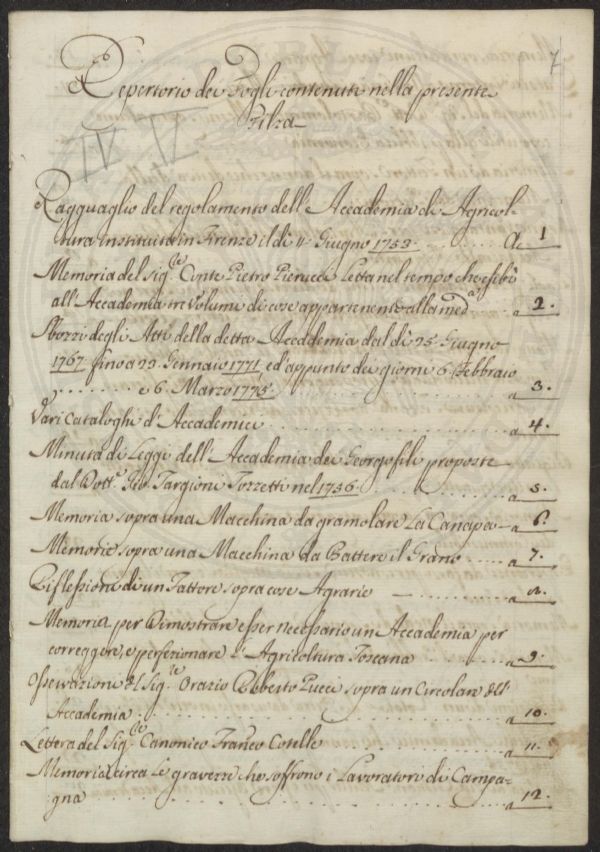 7
Repertorio dei Fogli contenuti nella presente
Filza
IV V
Ragguaglio del regolamento dell'Accademia di Agricol-
tura instituita in Firenze il dì 4 Giugno 1753 a 1
Memoria del Sig.re Conte Pietro Pierucci Letta nel tempo che esibì
all'Accademia tre Volumi di cose appartenenti alla med.a a 2.
Sbozzi degli Atti della detta Accademia dal dì 25 Giugno
1767 fino a 23 Gennaio 1771 ed appunto dei giorni 6 Febbraio
e 6 Marzo 1775 a 3.
Vari Cataloghi d'Accademici a 4.
Minuta di Leggi dell'Accademia dei Georgofili proposte
dal Dott.e Gio. Targioni Tozzetti nel 1756 a 5.
Memoria sopra una Macchina da gramolare La Canapa a 6.
Memorie sopra una Macchina da Battere il Grano a 7.
Riflessioni di un Fattore sopra cose Agrarie a 8.
Memoria per Dimostrare esser necessario un Accademia per
correggere, e perfezionare l'Agricoltura Toscana a 9.
Osservazioni del Sig.re Orazio Roberto Pucci sopra un Circolare dell'
Accademia a 10.
Lettera del Sig.re Canonico Franco Cotelle a 11.
Memoria circa Le gravezze che soffrono i Lavoratori di Campa-
gna a 12.